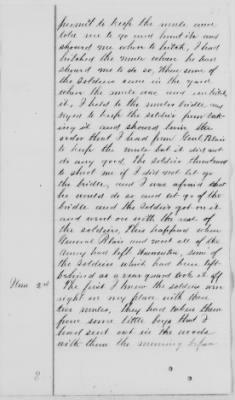 permit to keep the mule and
told me to go and hunt it and
showed me where to hitch, I had
hitched the mule where he had
showed me to do so, When some of
the soldiers came in the yard
where the mule was and unhitched
it, I held to the mules bridle and
tryed to keep the soldier from tak-
ing it and showed him the
order that I had from Genl Blair
to keep the mule but it did not
do any good. The soldier threatened
to shoot me if I did not let go
the bridle, and I was afraid that
he would do so and let go of the
bridle and the soldier got on it
and went on with the rest of
the soldiers, This happened when
General Blair and most all of the
army had left. some of
the soldiers which had been left
behind as a rear guard took it off.
2nd The first I knew the soldiers were
right in my place with these
two mules, they had taken them
from some little boys that I
had sent out in the woods
with them the morning before
8